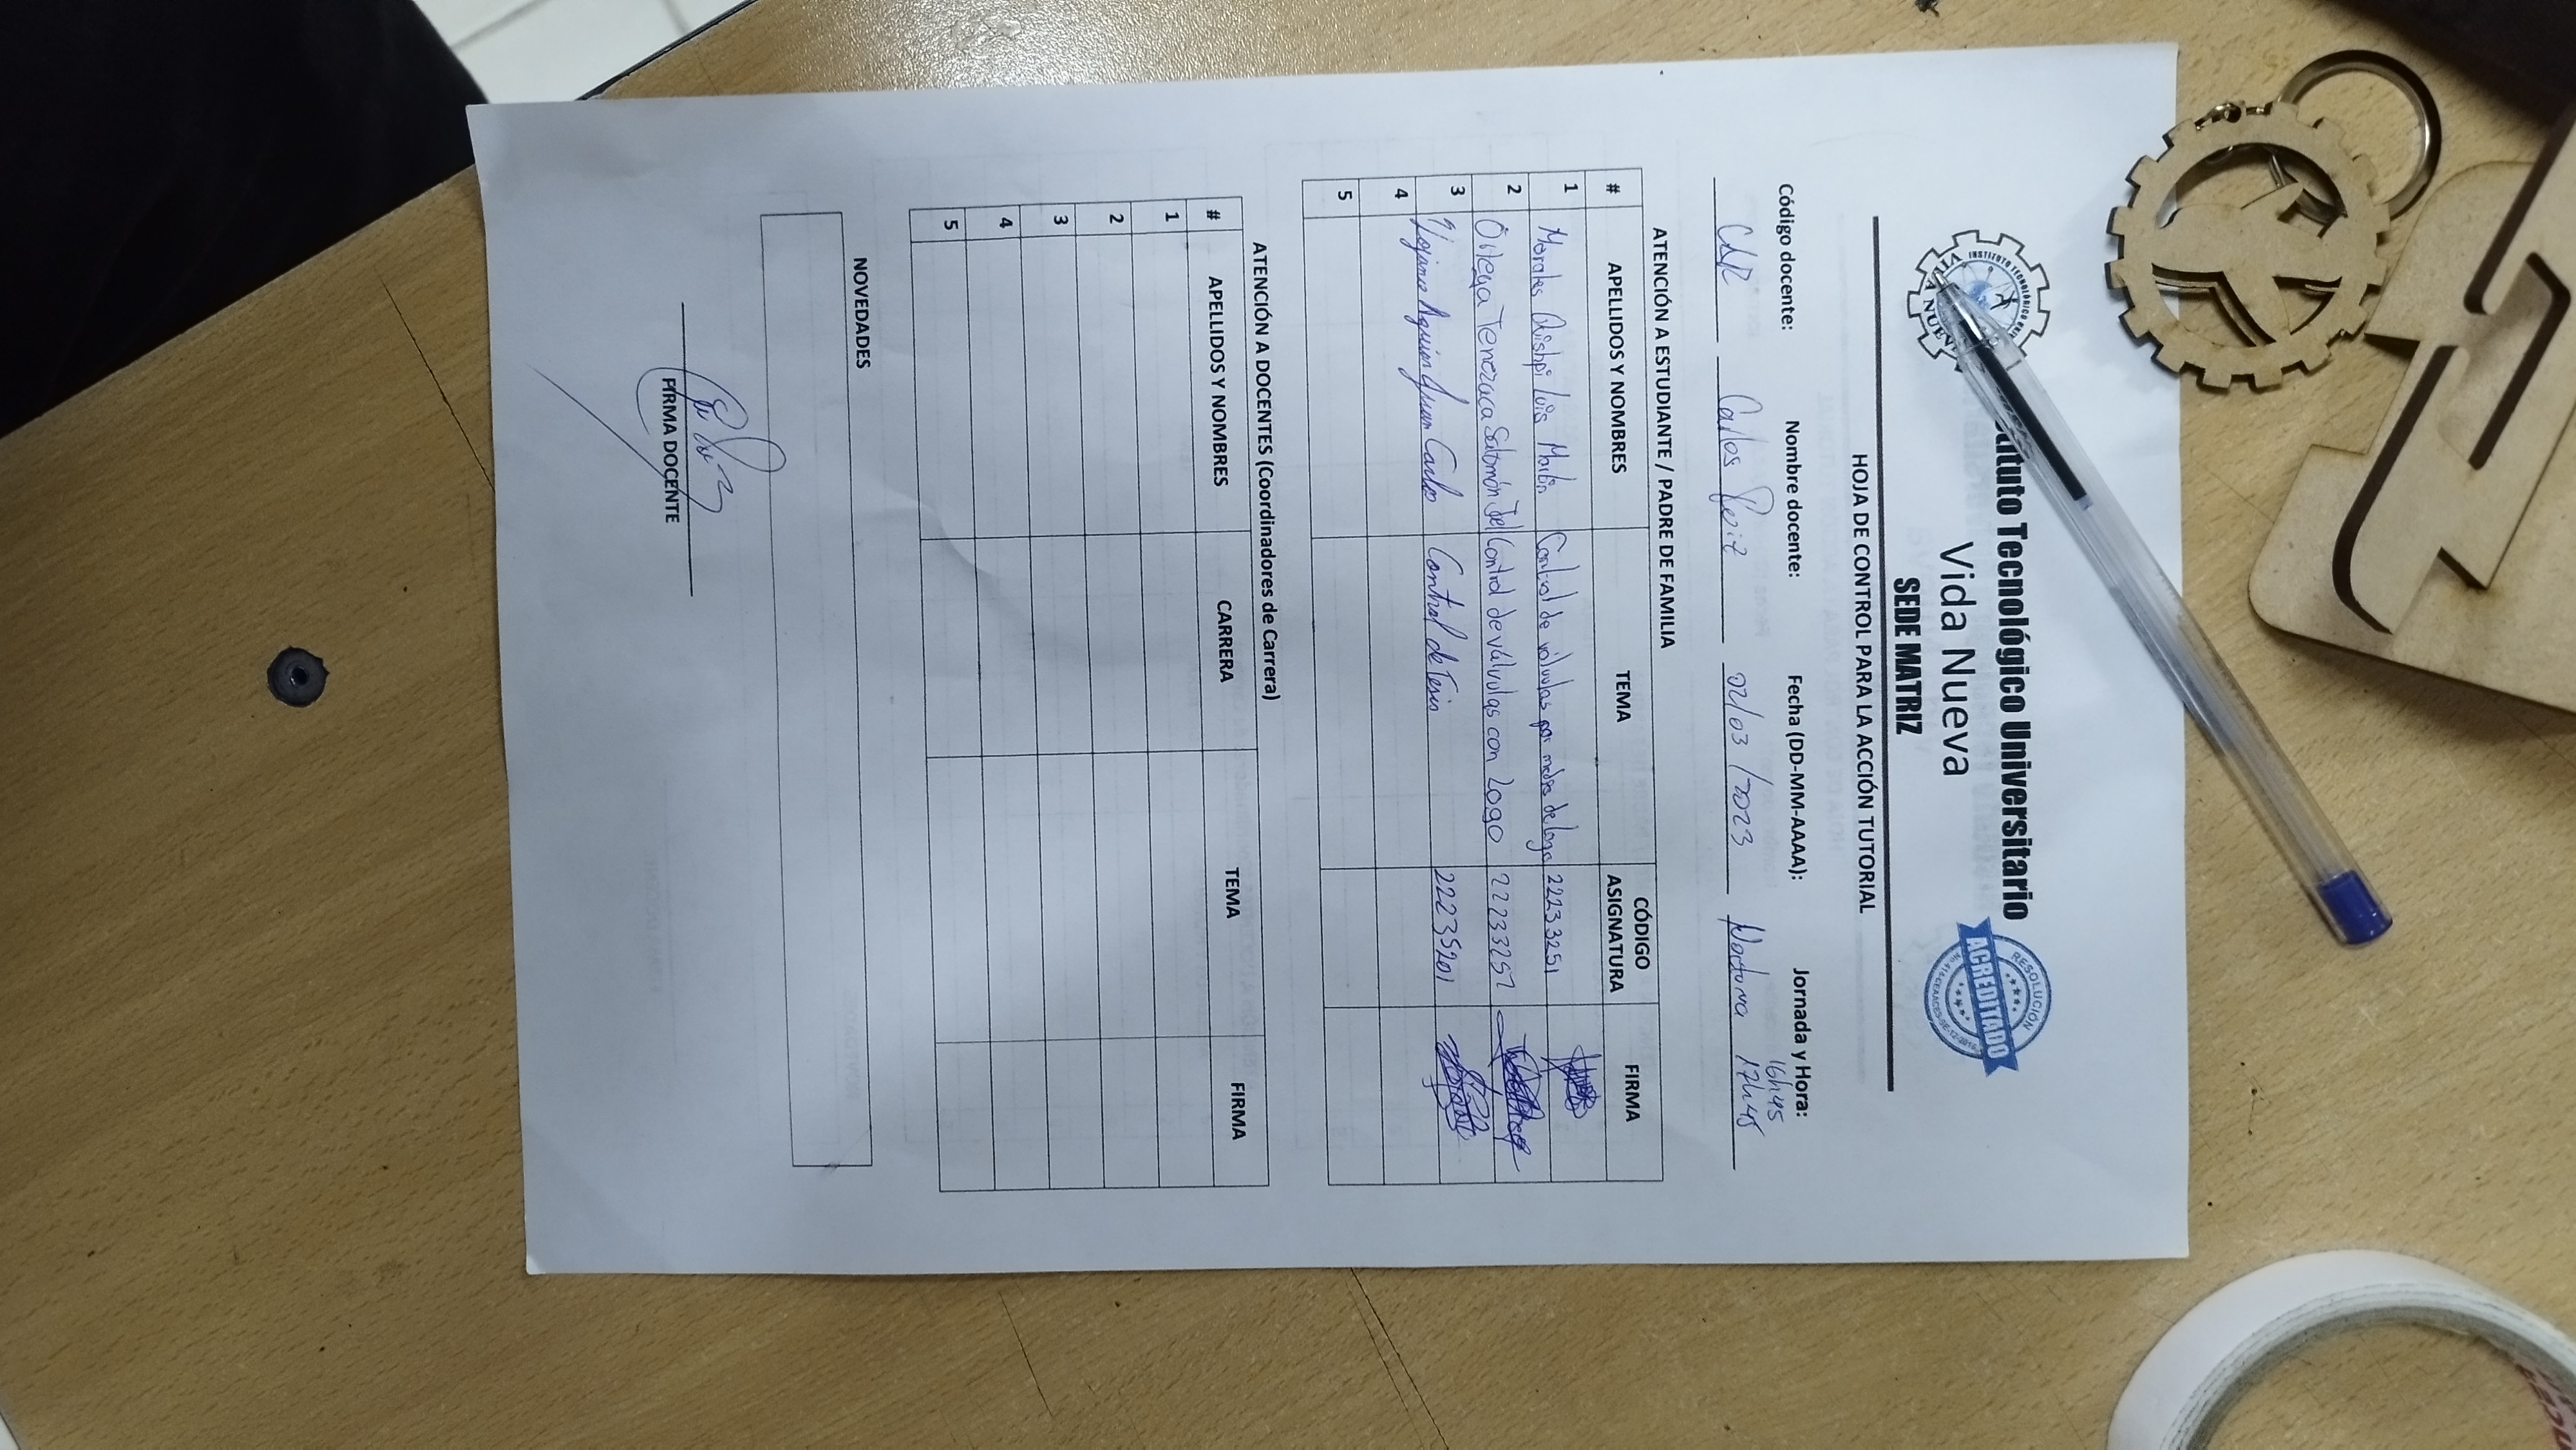 tuto Tecnológico Universitario
Vida Nueva
SEDE MATRIZ
INSTITUTO TECNOLÓGICO
RESOLUCIÓN
ACREDITADO
HOJA DE CONTROL PARA LA ACCIÓN TUTORIAL
Código docente: Nombre docente: Fecha (DD-MM-AAAA): Jornada y Hora:
16h45
Carlos 02/03/2023 Nocturna 17h45
ATENCIÓN A ESTUDIANTE / PADRE DE FAMILIA
# APELLIDOS Y NOMBRES TEMA CÓDIGO ASIGNATURA FIRMA
1 Morales Quishpi Luis Control de válvulas por medio de logo 22233251
2 Ortega Tenezaca Salomón Control de válvulas con Logo 22233251
3 Juan Carlos Control de Tesis 22235201
4
5
ATENCIÓN A DOCENTES (Coordinadores de Carrera)
# APELLIDOS Y NOMBRES CARRERA TEMA FIRMA
1
2
3
4
5
NOVEDADES
FIRMA DOCENTE